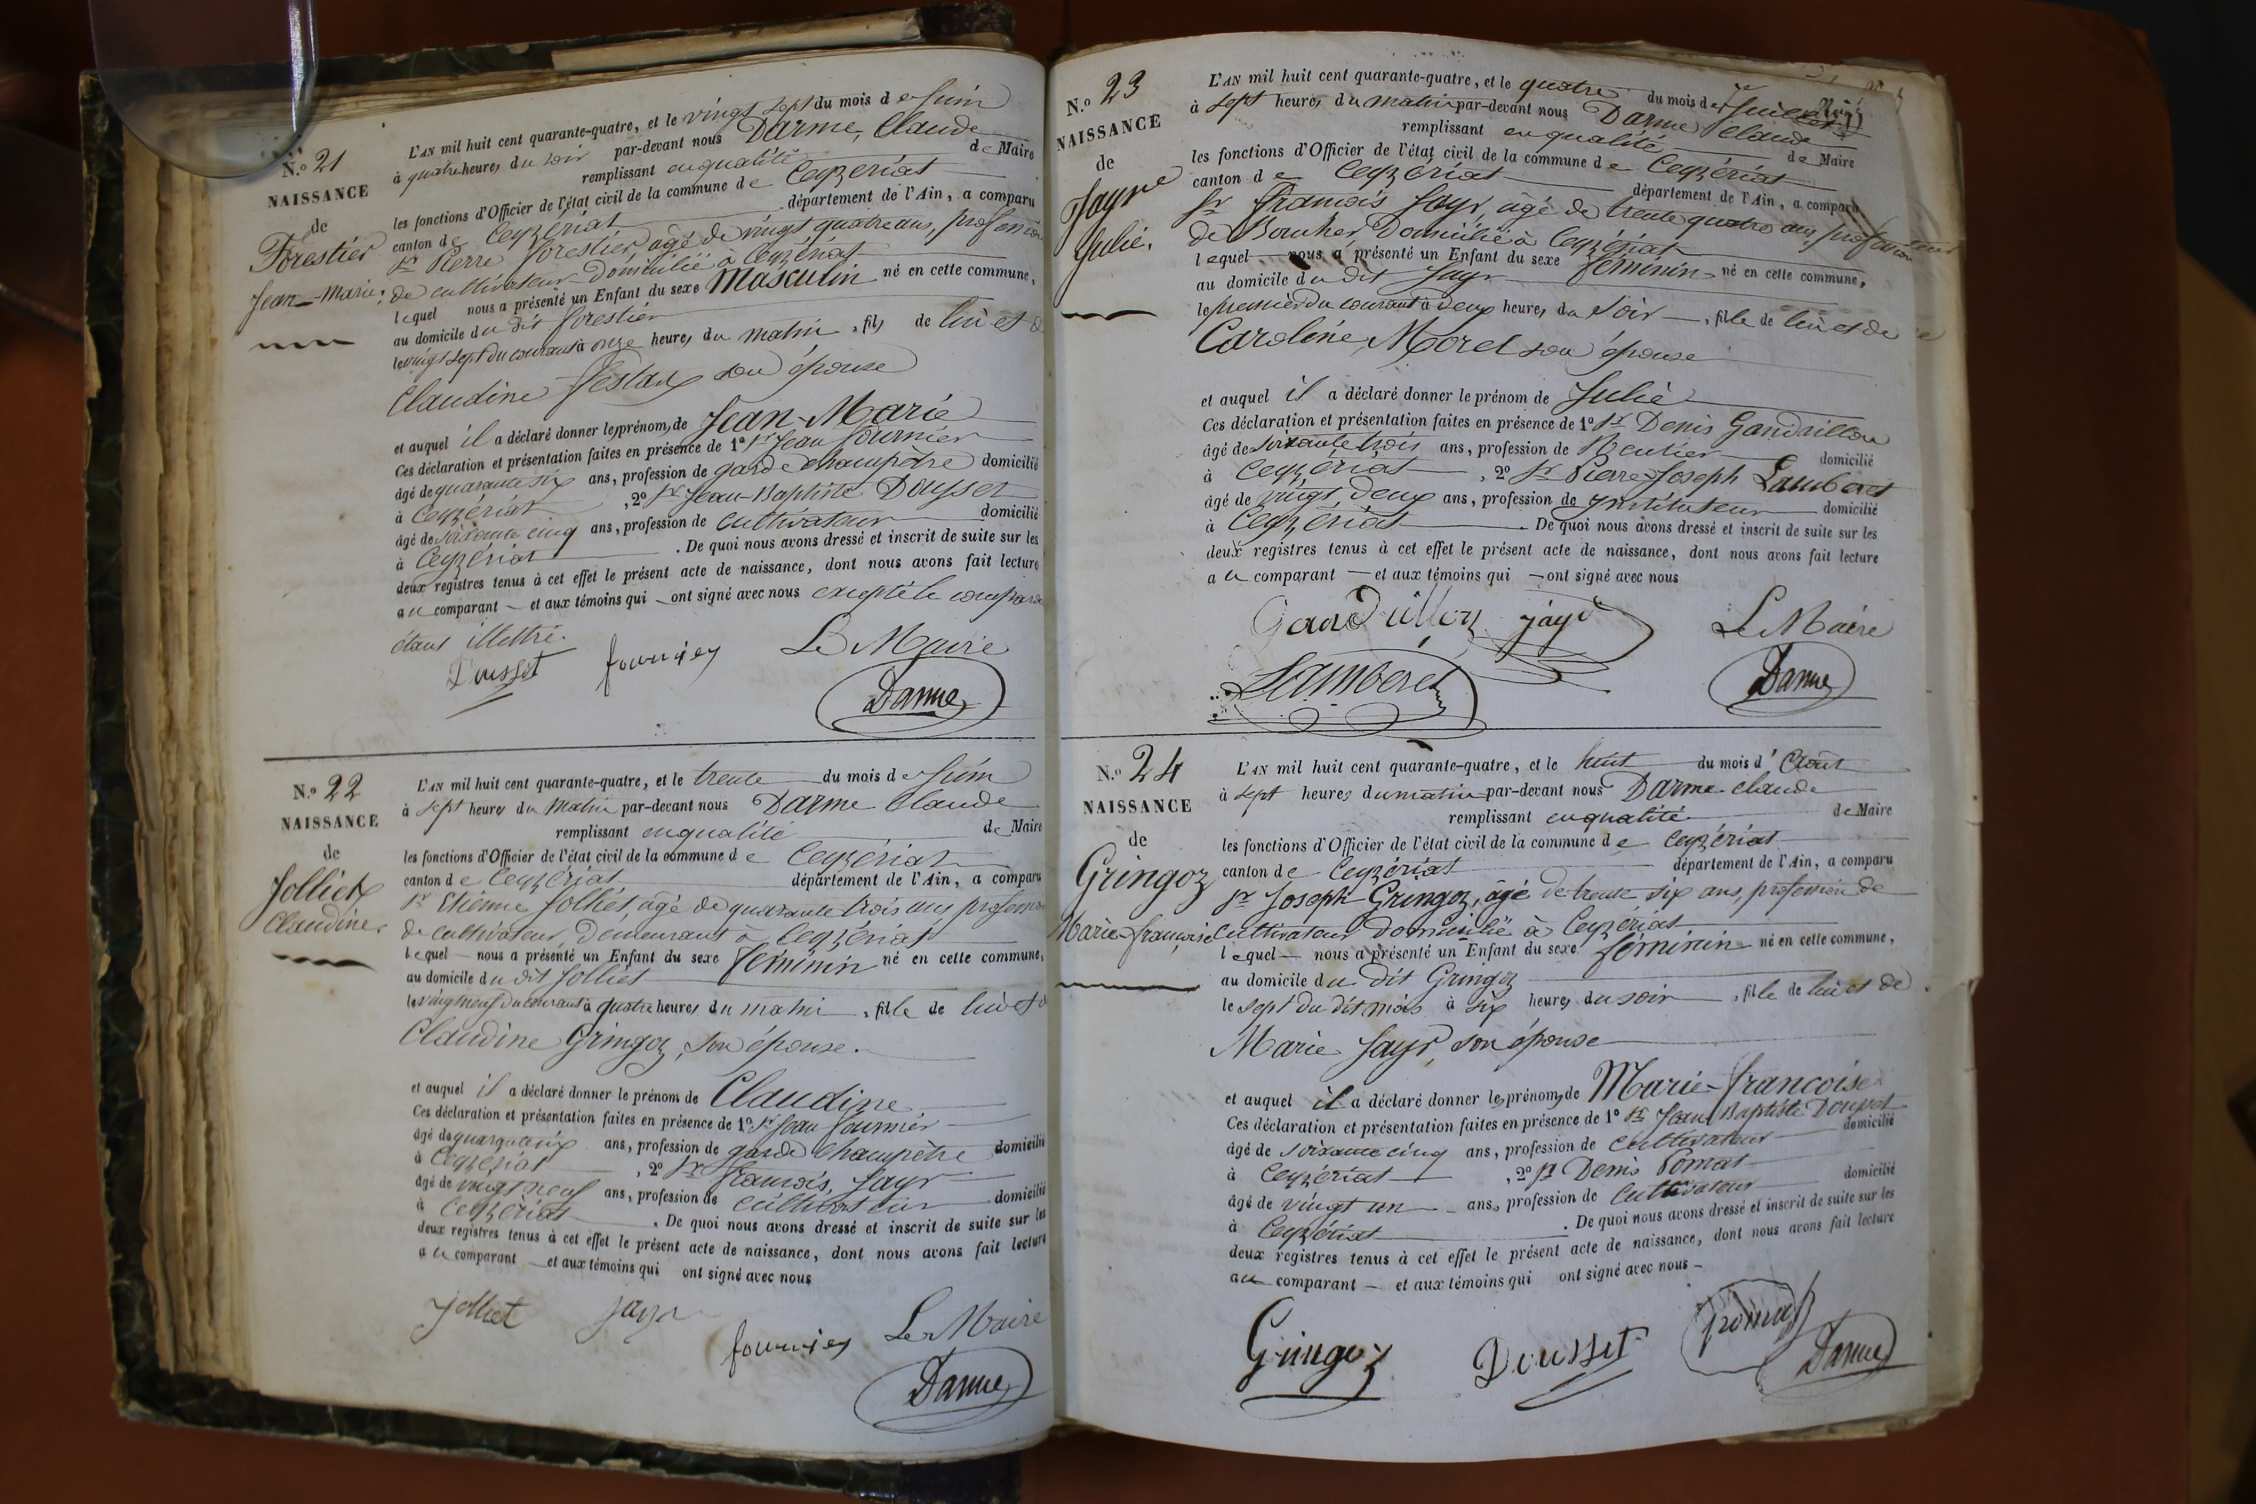 N.° 21
NAISSANCE
de
Forestier
Jean-Marie.
L'AN mil huit cent quarante-quatre, et le vingt sept du mois de Juin
à quatre heures du soir par-devant nous Darme, Claude
remplissant en qualité de Maire
les fonctions d'Officier de l'état civil de la commune de Ceyzériat
canton de Ceyzériat département de l'Ain, a comparu
Sr Pierre forestier, agé de vingt quatre ans, profession
de cultivateur domicilié à Ceyzériat
lequel nous a présenté un Enfant du sexe Masculin né en cette commune,
au domicile du dit forestier
le vingt sept du courant à onze heures du matin, fils de lui et d
Claudine son épouse
et auquel il a déclaré donner les prénoms de Jean-Marie
Ces déclaration et présentation faites en présence de 1° Sr Jean fournier
âgé de quarante six ans, profession de garde champêtre domicilié
à Ceyzériat, 2° Sr Jean-Baptiste Dousset
âgé de soixante cinq ans, profession de cultivateur domicilié
à Ceyzériat. De quoi nous avons dressé et inscrit de suite sur les
deux registres tenus à cet effet le présent acte de naissance, dont nous avons fait lecture
au comparant et aux témoins qui ont signé avec nous excepté le comparant
étant illettré.
Dousset fournier Le Maire
Darme
N.° 22
NAISSANCE
de
Jolliet
Claudine
L'AN mil huit cent quarante-quatre, et le trente du mois de Juin
à sept heures du matin par-devant nous Darme Claude
remplissant en qualité de Maire
les fonctions d'Officier de l'état civil de la commune de Ceyzériat
canton de Ceyzériat département de l'Ain, a comparu
Sr Etienne Jolliet, âgé de quarante trois ans profession
de cultivateur demeurant à Ceyzériat
lequel nous a présenté un Enfant du sexe féminin né en cette commune,
au domicile du dit Jolliet
le vingt neuf du courant à quatre heures du matin, fille de lui et d
Claudine Gringoz, son épouse.
et auquel il a déclaré donner le prénom de Claudine
Ces déclaration et présentation faites en présence de 1° Sr Jean fournier
âgé de quarante six ans, profession de garde champêtre domicilié
à Ceyzériat, 2° Sr francois Jayr
âgé de vingt neuf ans, profession de cultivateur domicilié
à Ceyzériat. De quoi nous avons dressé et inscrit de suite sur les
deux registres tenus à cet effet le présent acte de naissance, dont nous avons fait lecture
au comparant et aux témoins qui ont signé avec nous
Jolliet Jayr fournier Le Maire
Darme
N.° 23
NAISSANCE
de
Jayr
Julie.
L'AN mil huit cent quarante-quatre, et le quatre du mois de Juillet
à sept heures du matin par-devant nous Darme Claude
remplissant en qualité de Maire
les fonctions d'Officier de l'état civil de la commune de Ceyzériat
canton de Ceyzériat département de l'Ain, a comparu
Sr francois Jayr, âgé de trente quatre ans, profession
de Boucher, Domicilié à Ceyzériat
lequel nous a présenté un Enfant du sexe féminin né en cette commune,
au domicile du dit Jayr
le premier du courant à deux heures du soir, fille de lui et de
Caroline Morel son épouse
et auquel il a déclaré donner le prénom de Julie
Ces déclaration et présentation faites en présence de 1° Sr Denis Gandillon
âgé de soixante trois ans, profession de Rentier domicilié
à Ceyzériat, 2° Sr Pierre-Joseph Lamberet
âgé de vingt deux ans, profession de Instituteur domicilié
à Ceyzériat. De quoi nous avons dressé et inscrit de suite sur les
deux registres tenus à cet effet le présent acte de naissance, dont nous avons fait lecture
au comparant et aux témoins qui ont signé avec nous
Gandillon jayr Le Maire
Lamberet Darme
N.° 24
NAISSANCE
de
Gringoz
Marie-françoise
L'AN mil huit cent quarante-quatre, et le huit du mois d'Aout
à sept heures du matin par-devant nous Darme Claude
remplissant en qualité de Maire
les fonctions d'Officier de l'état civil de la commune de Ceyzériat
canton de Ceyzériat département de l'Ain, a comparu
Sr Joseph Gringoz, âgé de trente six ans, profession de
cultivateur domicilié à Ceyzériat
lequel nous a présenté un Enfant du sexe féminin né en cette commune,
au domicile du dit Gringoz
le sept du dit mois à six heures du soir, fille de lui et de
Marie Jayr, son épouse
et auquel il a déclaré donner les prénoms de Marie-francoise
Ces déclaration et présentation faites en présence de 1° Sr Jean Baptiste Dousset
âgé de soixante cinq ans, profession de cultivateur domicilié
à Ceyzériat, 2° Sr Denis Pomat
âgé de vingt un ans, profession de cultivateur domicilié
à Ceyzériat. De quoi nous avons dressé et inscrit de suite sur les
deux registres tenus à cet effet le présent acte de naissance, dont nous avons fait lecture
au comparant et aux témoins qui ont signé avec nous
Gringoz Dousset pomat Darme